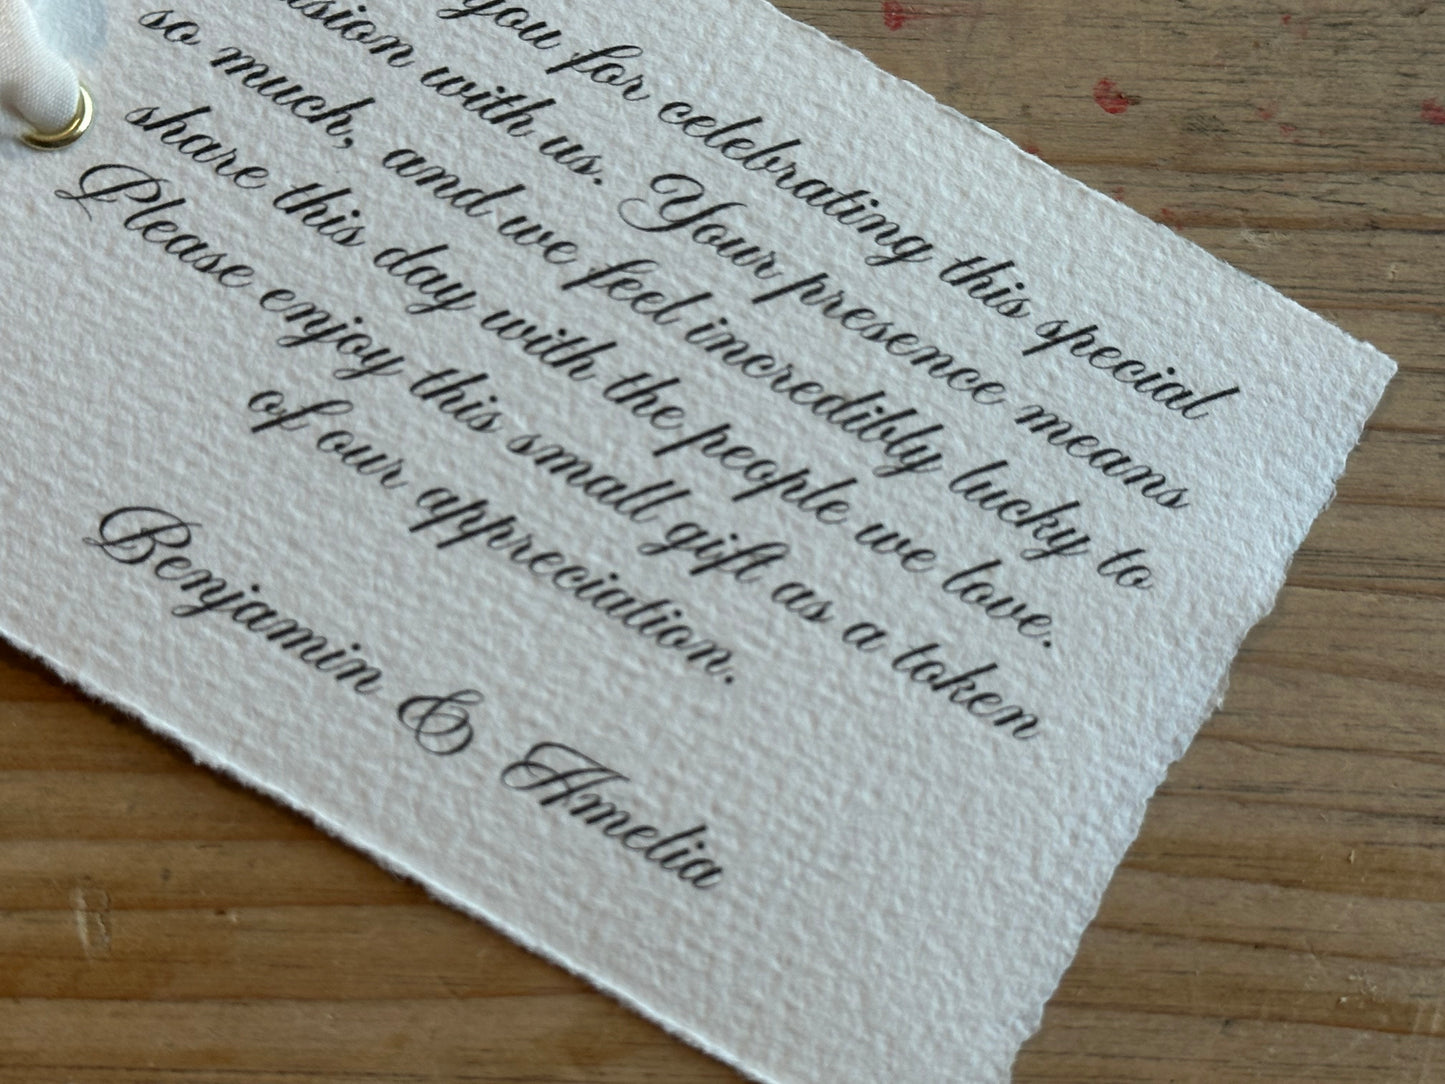 you for celebrating this special
with us. Your presence means
so much, and we feel incredibly lucky to
share this day with the people we love.
Please enjoy this small gift as a token
of our appreciation.
Benjamin & Amelia